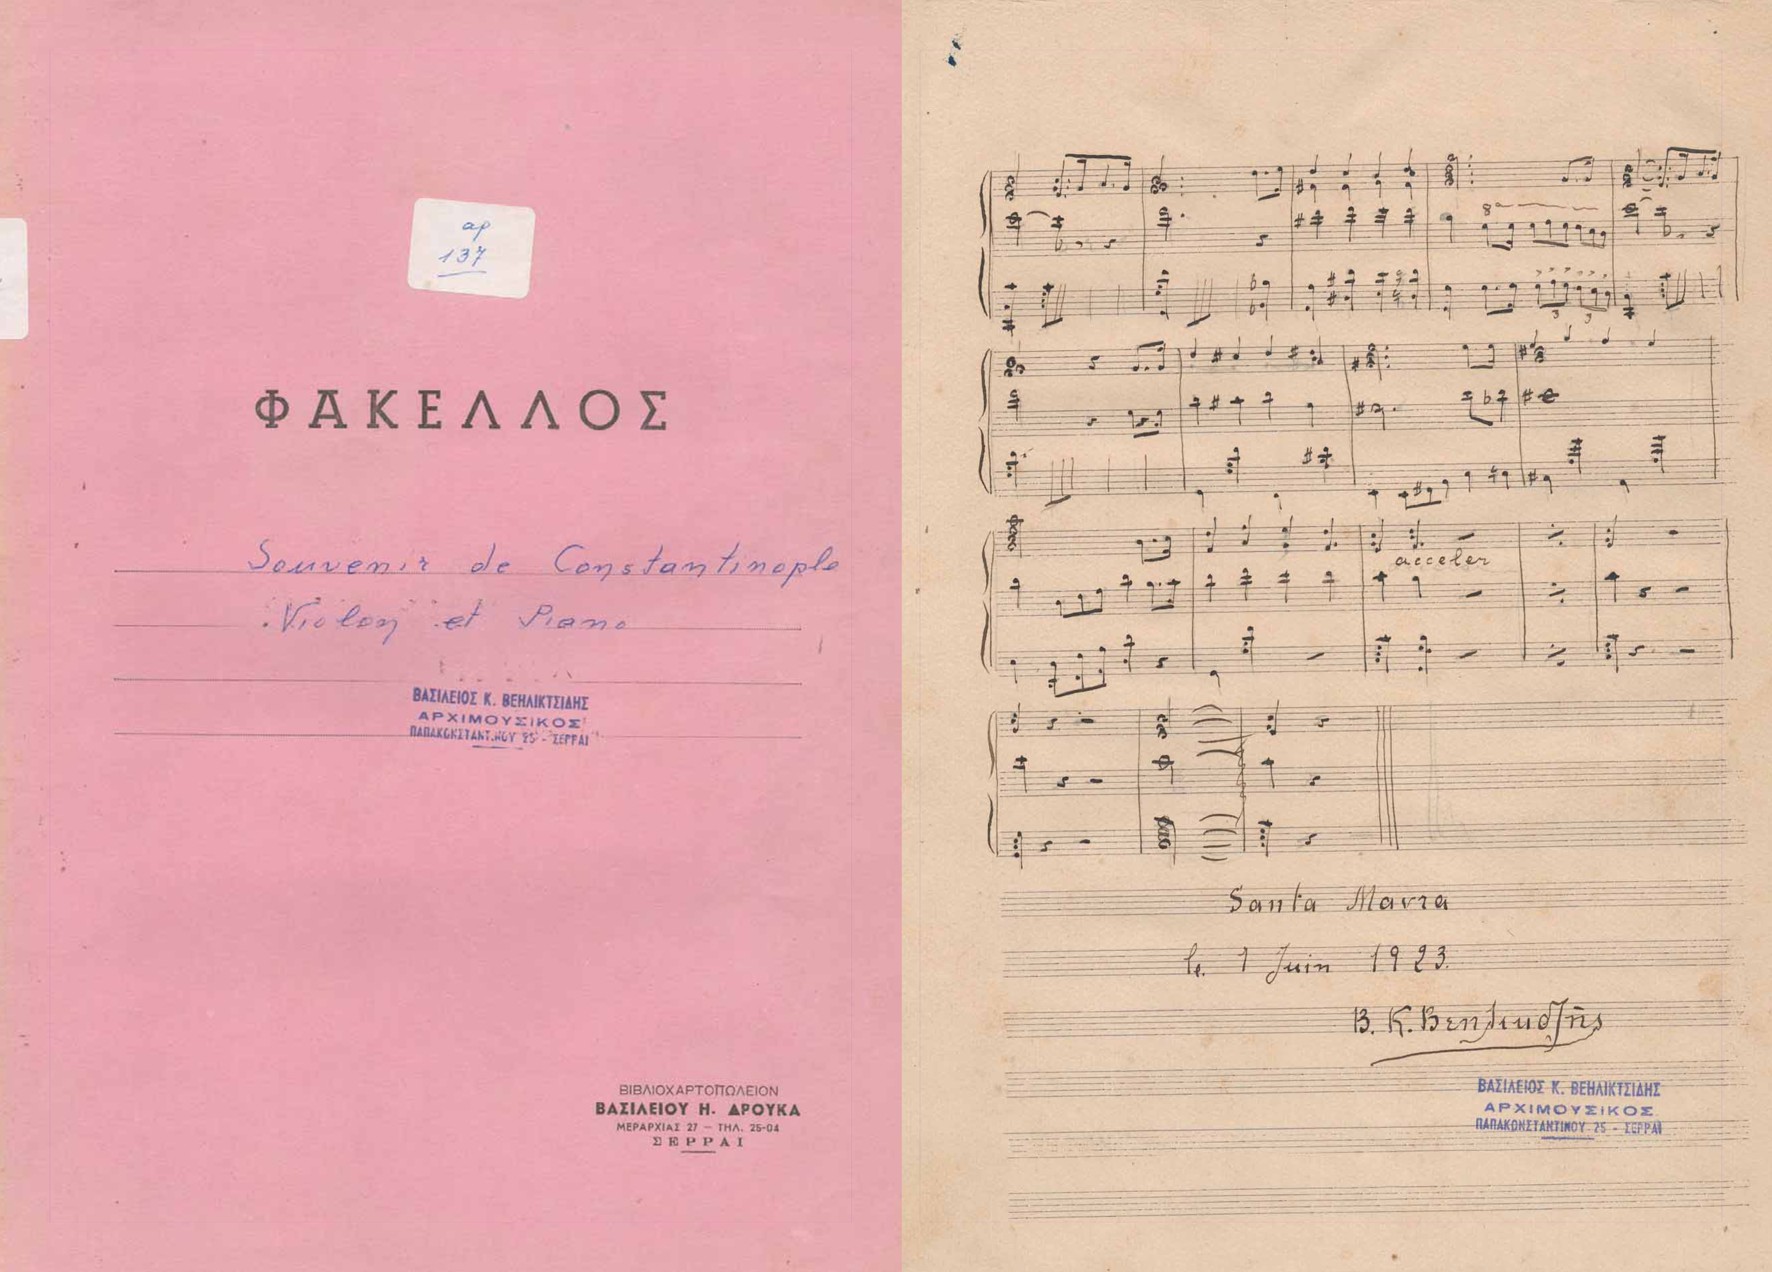 αρ
137
ΦΑΚΕΛΛΟΣ
Souvenir de Constantinople
Violon et Piano
ΒΑΣΙΛΕΙΟΣ Κ. ΒΕΗΛΙΚΤΣΙΔΗΣ
ΑΡΧΙΜΟΥΣΙΚΟΣ
ΠΑΠΑΚΩΝΣΤΑΝΤΙΝΟΥ 25 - ΣΕΡΡΑΙ
ΒΙΒΛΙΟΧΑΡΤΟΠΩΛΕΙΟΝ
ΒΑΣΙΛΕΙΟΥ Η. ΔΡΟΥΚΑ
ΜΕΡΑΡΧΙΑΣ 27 — ΤΗΛ. 25-04
ΣΕΡΡΑΙ
8ᵃ
3 3
acceler
Santa Mavra
le 1 Juin 1923
Β. Κ. Βεηλικδζῆς
ΒΑΣΙΛΕΙΟΣ Κ. ΒΕΗΛΙΚΤΣΙΔΗΣ
ΑΡΧΙΜΟΥΣΙΚΟΣ
ΠΑΠΑΚΩΝΣΤΑΝΤΙΝΟΥ 25 - ΣΕΡΡΑΙ